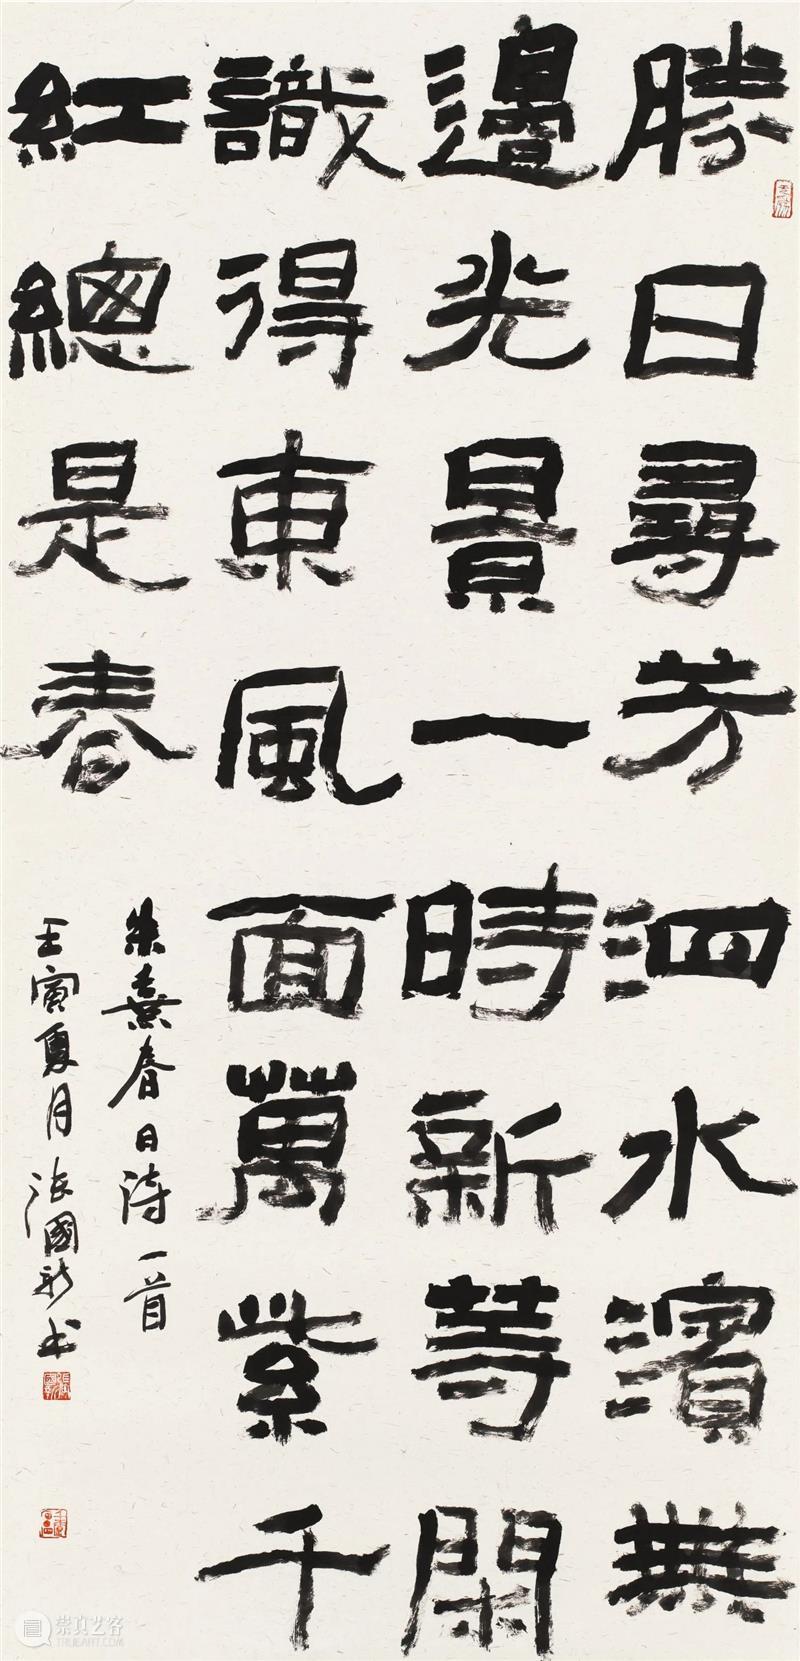 勝日尋芳泗水濱無
邊光景一時新等閑
識得東風面萬紫千
紅總是春
朱熹春日詩一首
壬寅夏月张國新书
崇真艺客
TRUEART.COM